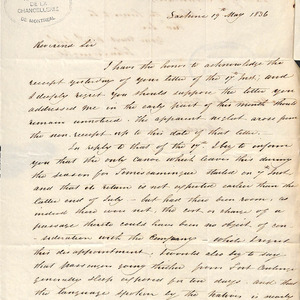 DE LA
CHANCELLERIE
DE MONTRÉAL
Lachine 19th May 1836
Reverend Sir
I have the honor to acknowledge the
receipt yesterday of your letter of the 17 Inst, and
I deeply regret you should suppose the letter you
addressed me in the early part of this month should
remain unnoticed. The apparent neglect arose from
the non-receipt up to this date of that letter.
In reply to that of the 17th, I beg to inform
you that the only Canoe which leave this during
the season for Temiscamingue started on 7 Inst
and that its return is not expected earlier than the
latter end of July - but had there been room, as
indeed there was not, the cost or charge of a
passage thither could have been no object of con-
sideration with the Company - Whilst I regret
this disappointment, I would also beg to say
that passengers going thither from Fort Coulonge
generally sleep exposed for ten days and that
the language spoken by the Natives is nearly